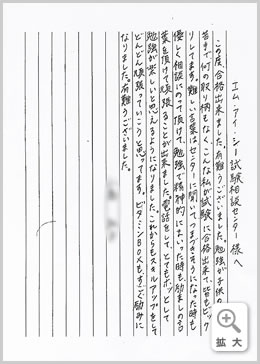 エム・アイ・シー試験相談センター様へ
この度、合格出来ました。有難うございました。勉強が子供の
苦手で何の取り柄もなく、こんな私が試験に合格出来て、皆もビック
リしてます。難しい言葉はセンターに聞いて、つまづきそうになった時も
優しく相談にのって頂けて、勉強で精神的にまいった時も、励ましの言
葉を頂けて頑張ることが出来ました。電話をして、とてもホッとして
勉強が楽しいと思えるようになりました。これからもスキルアップをして
どんどん頑張っていこうと思ってます。ビタミンBOXも、すごく励みに
なりました。有難うございました。
拡大